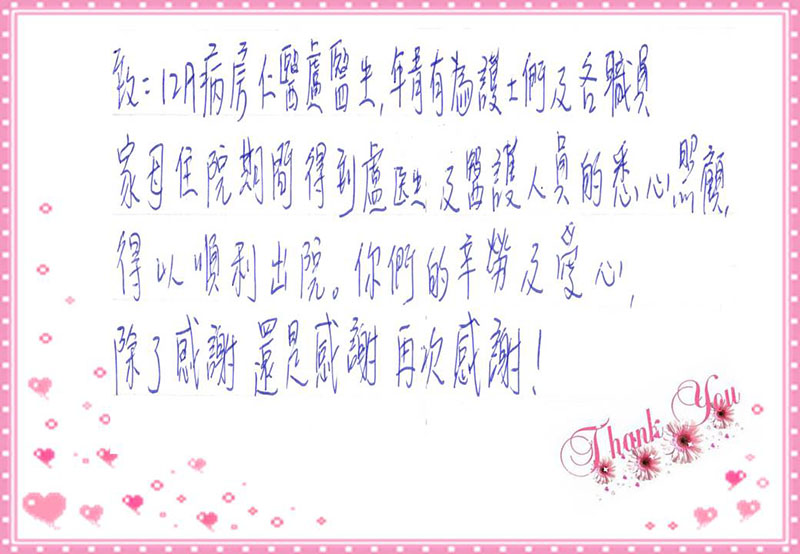 致=12月病房仁醫盧醫生,年青有為護士們及各職員
家母住院期間得到盧医生及醫護人員的悉心照顧,
得以順利出院。你們的辛勞及愛心,
除了感謝還是感謝再次感謝!
Thank You